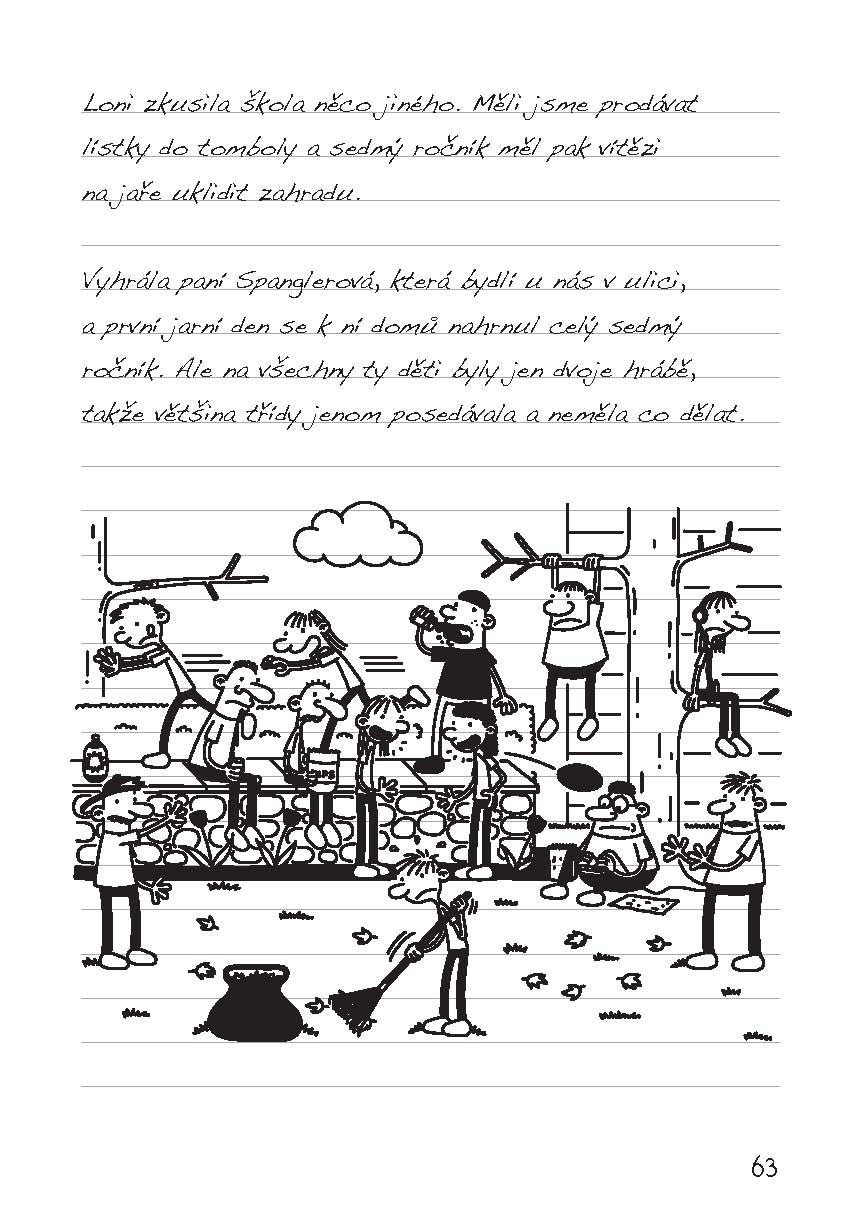 Loni zkusila škola něco jiného. Měli jsme prodávat
lístky do tomboly a sedmý ročník měl pak vítězi
na jaře uklidit zahradu.
Vyhrála paní Spanglerová, která bydlí u nás v ulici,
a první jarní den se k ní domů nahrnul celý sedmý
ročník. Ale na všechny ty děti byly jen dvoje hrábě,
takže většina třídy jenom posedávala a neměla co dělat.
63